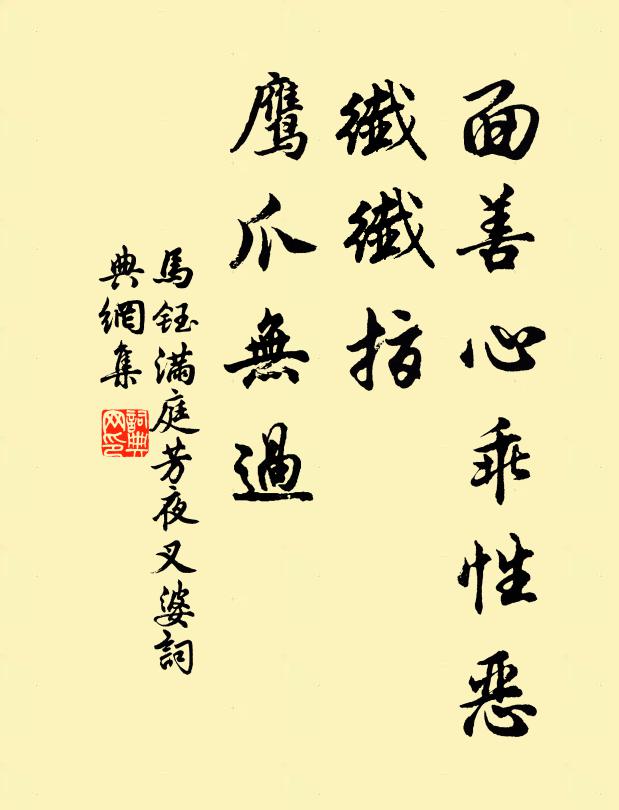 面善心乖性恶
纖纖指
鹰爪無過
馬鈺满庭芳夜叉婆詞
典網集
詞典
网印